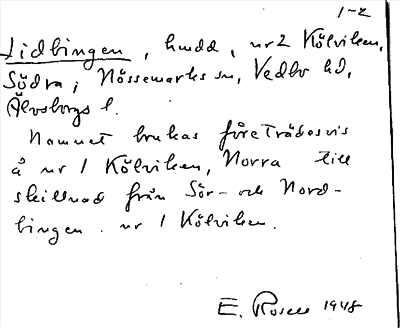 1-2
Lidbingen, hmdd, nr 2 Kölviken,
Södra; Nössemarks sn, Vedbo hd,
Älvsborgs l.
Namnet brukas företrädesvis
å nr 1 Kölviken, Norra till
skillnad från Sör- och Nord-
bingen. nr 1 Kölviken.
E. Rosell 1948